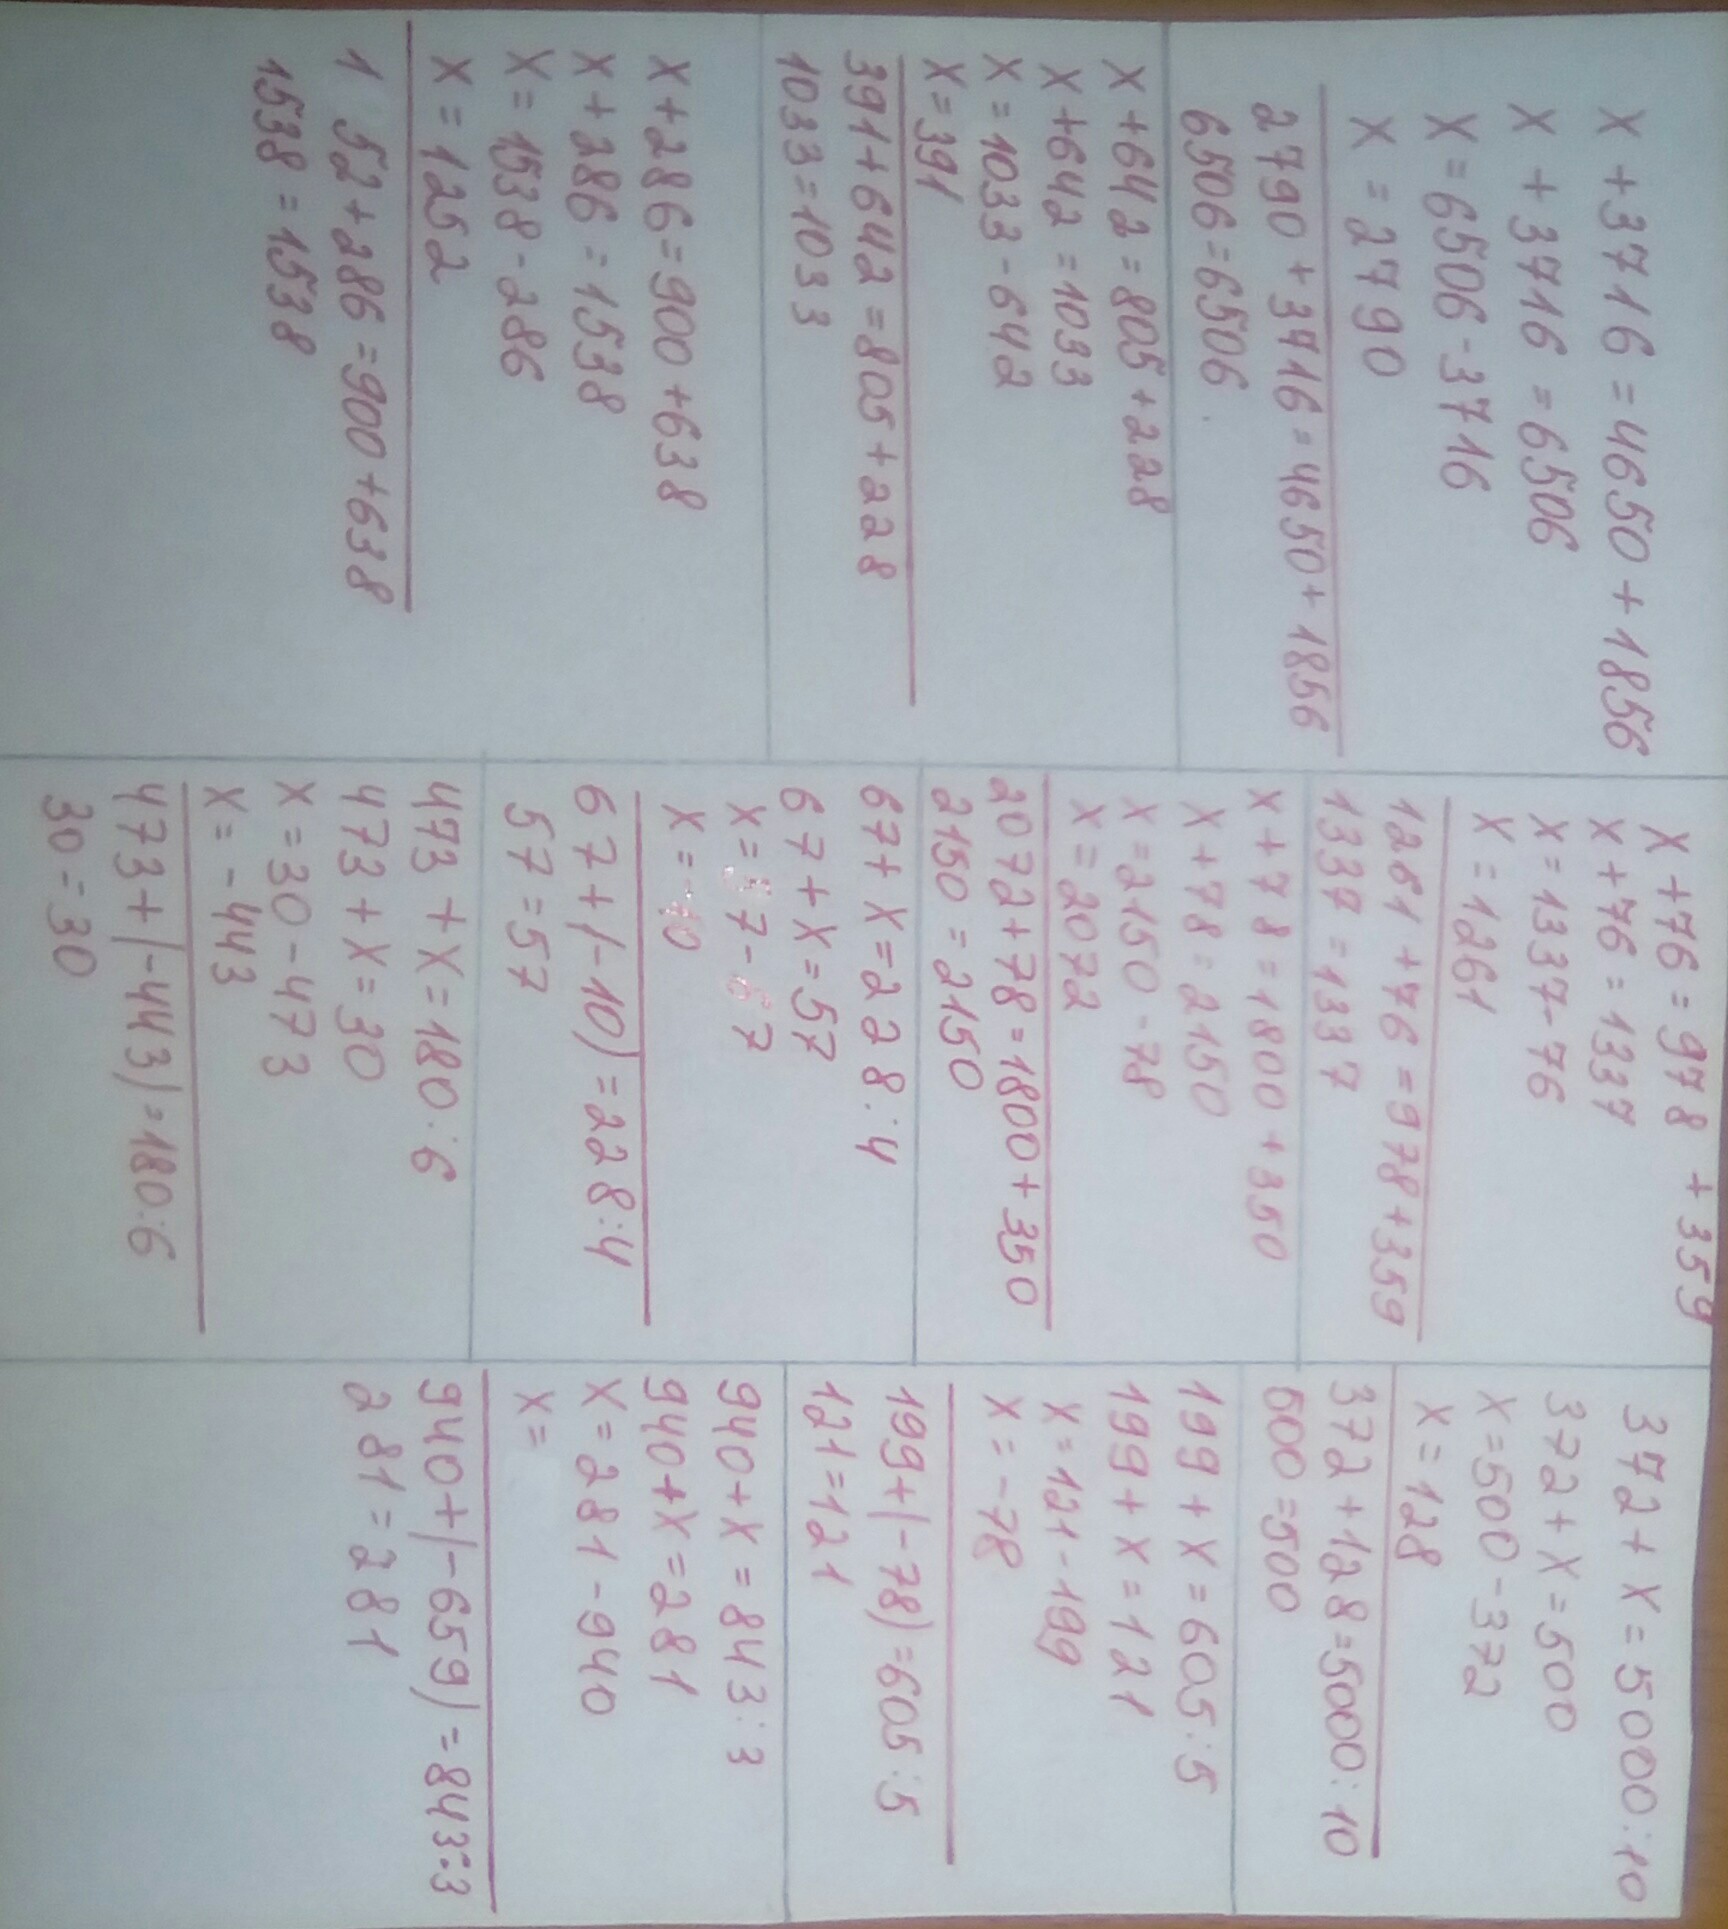 X+3716=4650+1856
X+3716=6506
X=6506-3716
X=2790
2790+3716=4650+1856
6506=6506.
X+642=805+228
X+642=1033
X=1033-642
X=391
391+642=805+228
1033=1033
X+286=900+638
X+286=1538
X=1538-286
X=1252
1 52+286=900+638
1538=1538
X+76=978+359
X+76=1337
X=1337-76
X=1261
1261+76=978+359
1337=1337
X+78=1800+350
X+78=2150
X=2150-78
X=2072
2072+78=1800+350
2150=2150
67+X=228:4
67+X=57
X=57-67
X=-10
67+(-10)=228:4
57=57
473+X=180:6
473+X=30
X=30-473
X=-443
473+(-443)=180:6
30=30
372+X=5000:10
372+X=500
X=500-372
X=128
372+128=5000:10
500=500
199+X=605:5
199+X=121
X=121-199
X=-78
199+(-78)=605:5
121=121
940+X=843:3
940+X=281
X=281-940
X=
940+(-659)=843:3
281=281